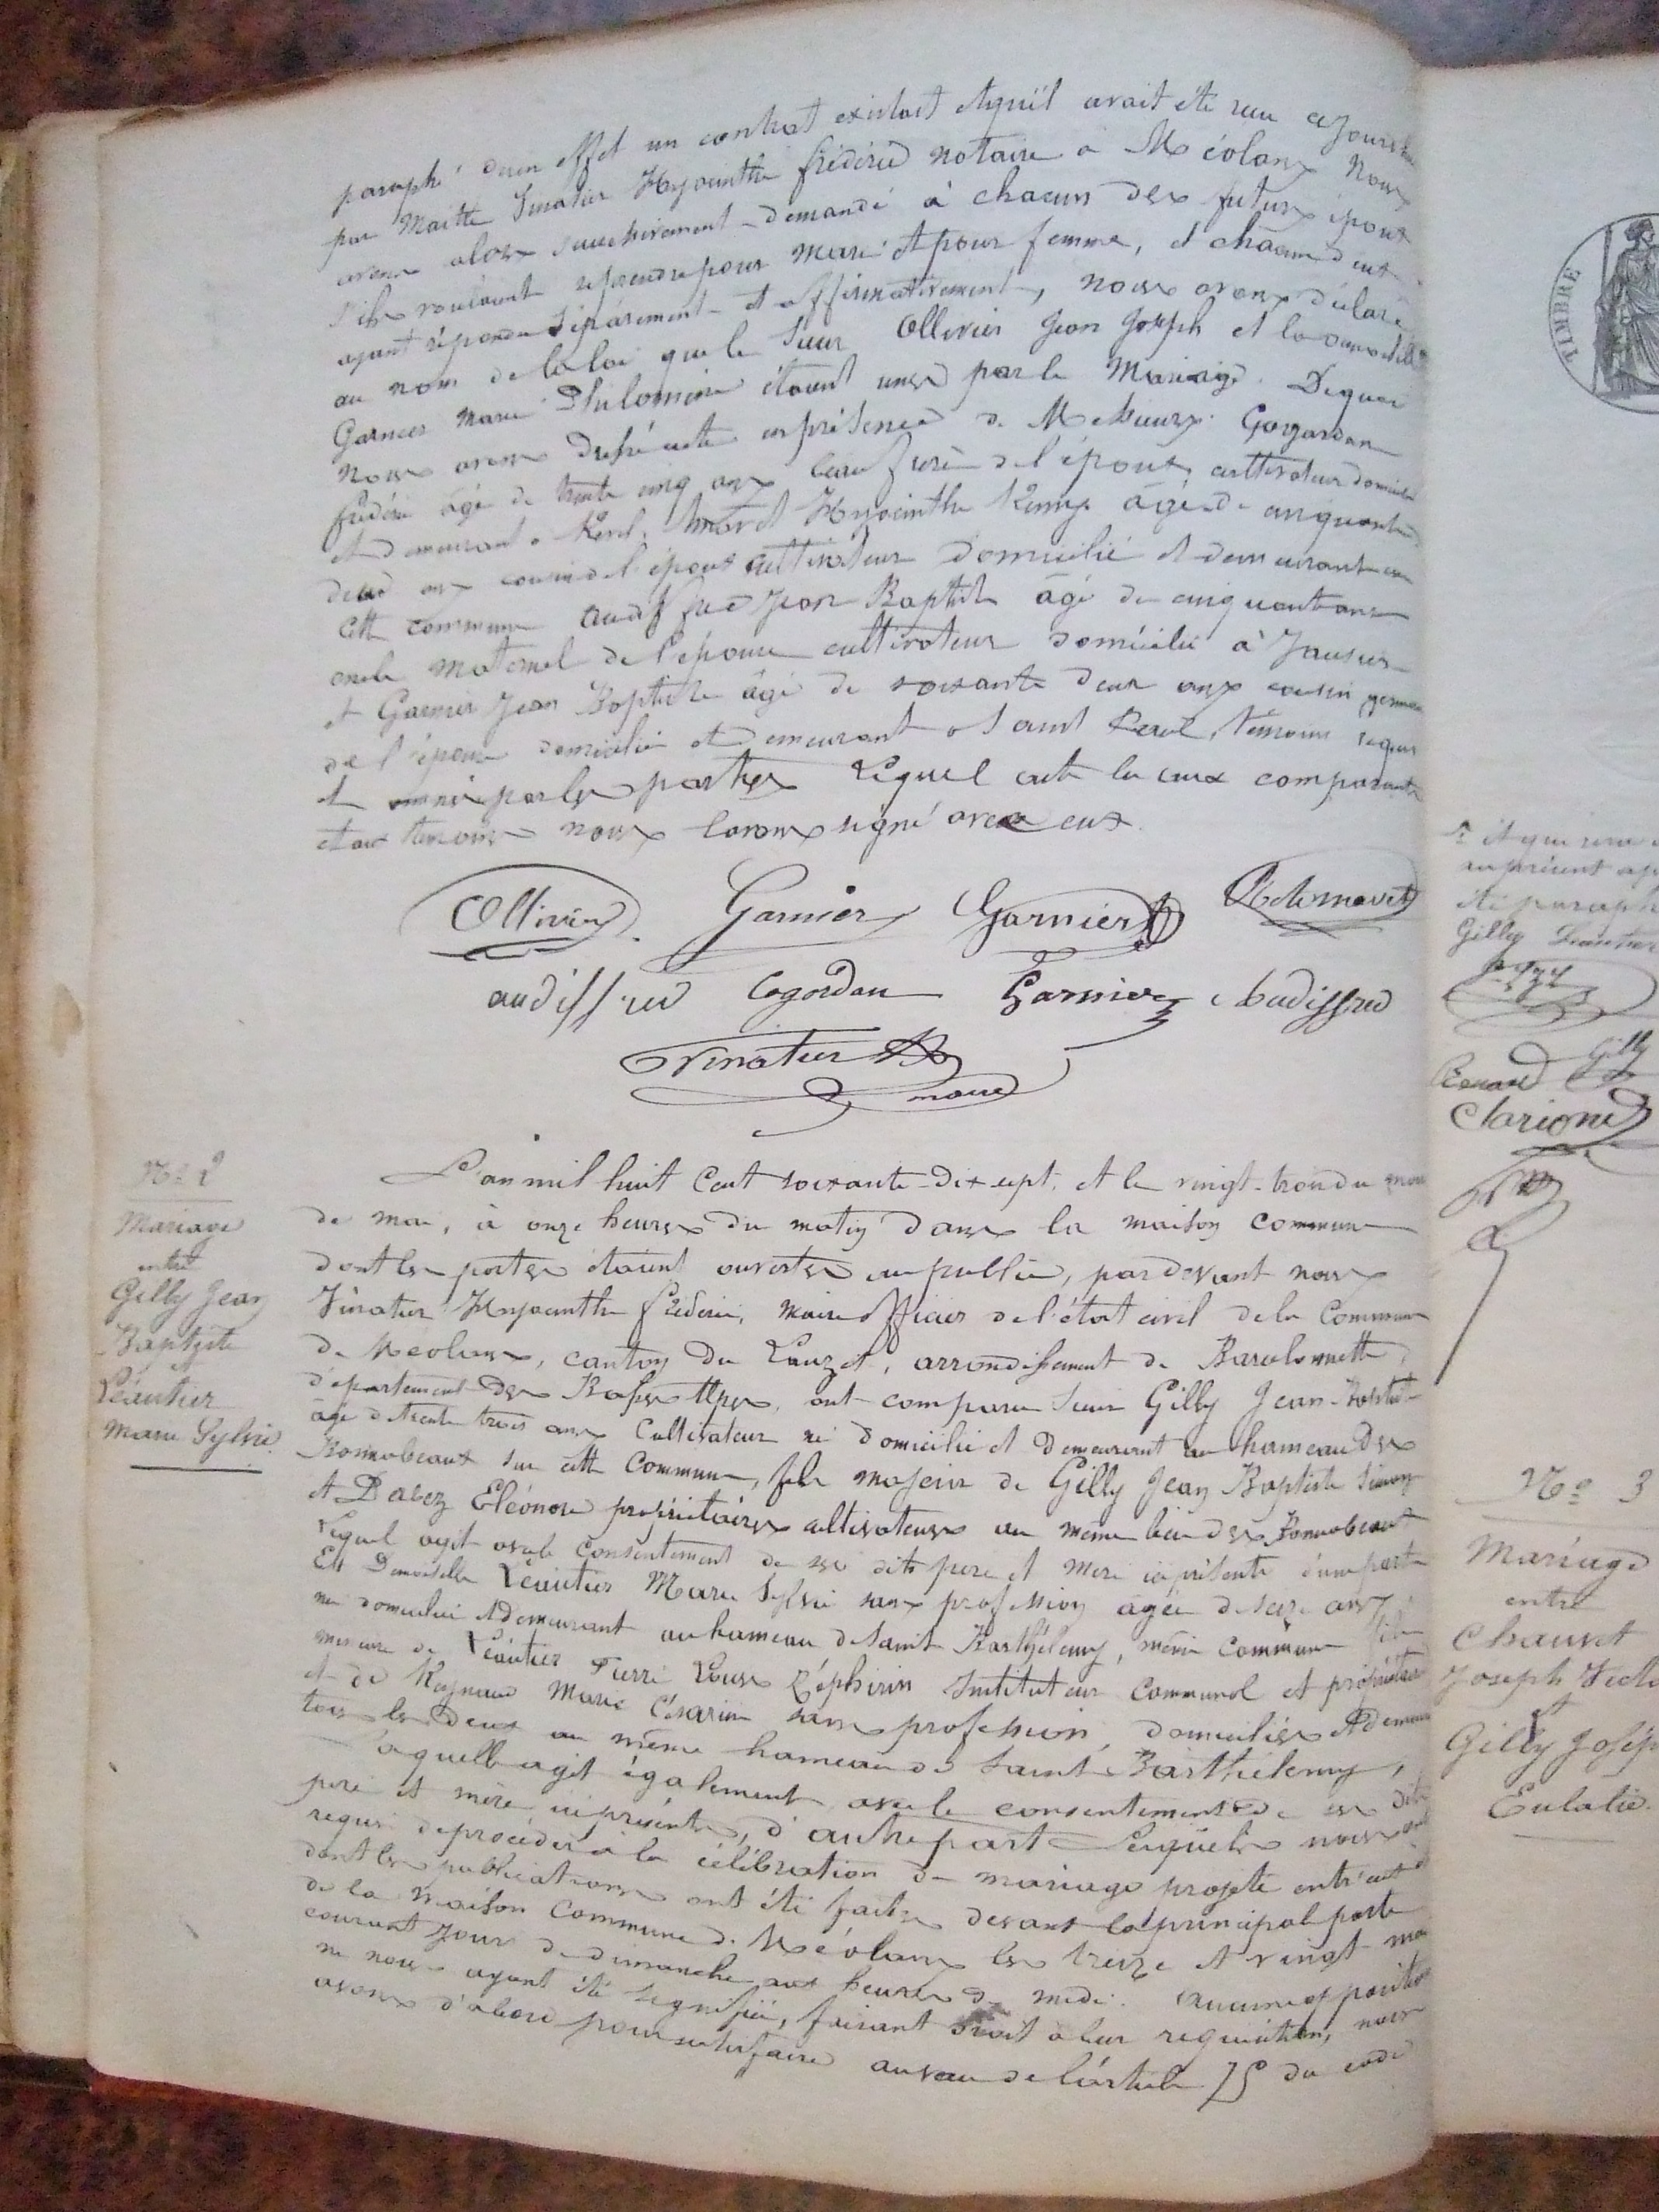 paraphé qu'en effet un contrat existait et qu'il avait été reçu ce jourd'hui
par Maitre Vinatier Hyacinthe frédéric notaire à Méolans Nous
avons alors successivement demandé à chacun des futurs époux
s'ils voulaient se prendre pour mari et pour femme, et chacun d'eux
ayant répondu séparément et affirmativement, nous avons déclaré
au nom de la loi que le sieur Ollivier Jean Joseph et la demoiselle
Garnier Marie Philomène étaient unis par le Mariage. De quoi
Nous avons dressé acte en présence de Messieurs Cogordan
frédéric âgé de trente cinq ans beau frère de l'époux cultivateur domicilié
et demeurant à Revel, Hyacinthe Rémy âgé de cinquante
deux ans cousin de l'époux cultivateur domicilié et demeurant en
cette commune audiffred Jean Baptiste âgé de cinquante ans
oncle maternel de l'épouse cultivateur domicilié à Jausiers
et Garnier Jean Baptiste âgé de soixante deux ans cousin germain
de l'épouse domicilié et demeurant à Saint témoins requis
et par les parties Lequel acte lu aux comparants
et aux témoins nous l'avons signé avec eux.
Ollivier Garnier Garnier
audiffred Cogordan Garnier audiffred
Vinatier
maire
N° 2
Mariage
entre
Gilly Jean
Baptiste
et
Léautier
Marie Sylvie.
L'an mil huit Cent soixante-dix sept, et le vingt-trois du mois
de mai, à onze heures du matin dans la maison commune
dont les portes étaient ouvertes au public, par devant nous
Vinatier Hyacinthe frédéric, maire officier de l'état civil de la Commune
de Méolans, canton du Lauzet, arrondissement de Barcelonnette,
département des Basses Alpes, ont comparu Sieur Gilly Jean-Baptiste
âgé de trente trois ans Cultivateur né domicilié et demeurant au hameau des
sur cette Commune, fils majeur de Gilly Jean Baptiste Simon
et Eléonore propriétaires cultivateurs au même lieu des
Lequel agit avec le Consentement de ses dits père et mère ici présents d'une part
Et Demoiselle Léautier Marie Sylvie sans profession agée de seize ans
née domiciliée et demeurant au hameau de Saint Barthélemy, même commune fille
mineure de Léautier Pierre Louis Zéphirin Instituteur Communal et propriétaire
et de Reynaud Marie Césarine sans profession, domiciliés et demeurant
tous les deux au même hameau de Saint Barthélemy,
Laquelle agit également avec le consentement de ses dits
père et mère ici présents, d'autre part Lesquels nous ont
requis de procéder à la célébration du mariage projeté entr'eux et
dont les publications ont été faites devant la principal porte
de la maison commune de Méolans les treize et vingt mai
courant jours de dimanche aux heures de midi. aucune opposition
ne nous ayant été signifiée, faisant droit à leur requisition, nous
avons d'abord pour satisfaire au vœu de l'article 75 du code
et qui sera
au présent
été paraphé
Gilly Léautier
Gilly
Clarione
N° 3
Mariage
entre
Chauvet
Joseph
et
Gilly
Eulalie.
TIMBRE